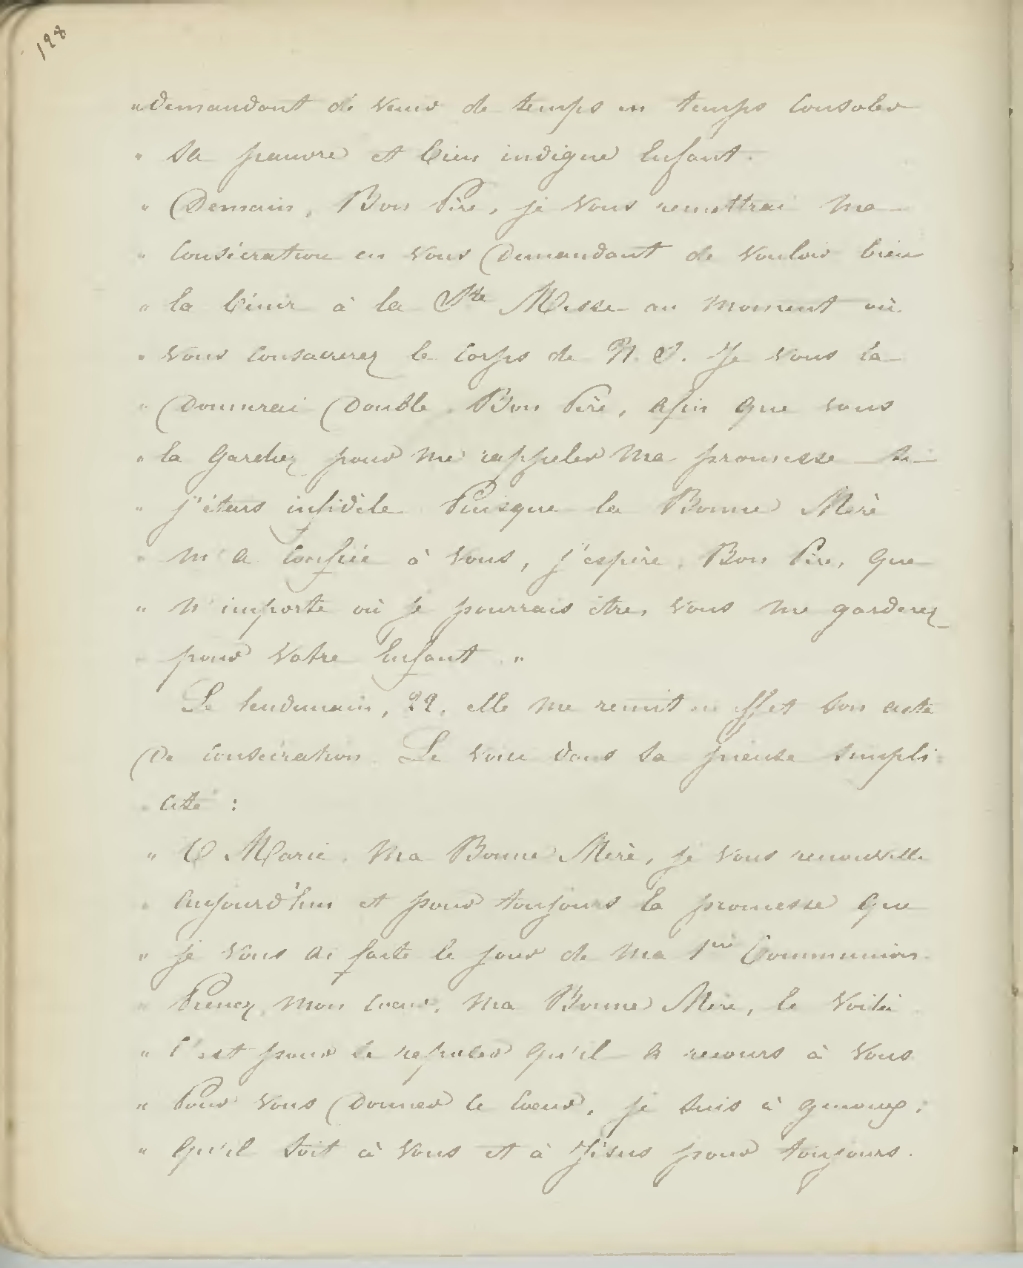 198
" demandant de venir de temps en temps consoler
" sa pauvre et bien indigne Enfant.
" Demain, Bon Père, je vous remettrai ma
" Consécration en vous Demandant de vouloir bien
" la bénir à la Ste Messe au moment où
" vous consacrerez le Corps de N. S. Je vous la
" Donnerai Double, Bon Père, afin que vous
" la gardiez pour me rappeler ma promesse si
" j'étais infidèle. Puisque la Bonne Mère
" m'a confiée à vous, j'espère, Bon Père, que
" n'importe où je pourrais être, vous me garderez
" pour votre Enfant. "
Le lendemain, 22, elle me remit en effet son acte
De consécration. Le voici dans sa pieuse simpli
cité :
" O Marie, ma Bonne Mère, je vous renouvelle
" aujourd'hui et pour toujours la promesse que
" je vous ai faite le jour de ma 1re Communion.
" Prenez mon cœur, ma Bonne Mère, le voilà
" C'est pour se reposer qu'il a recours à vous
" Pour vous Donner le cœur, je suis à genoux ;
" qu'il soit à vous et à Jésus pour toujours.